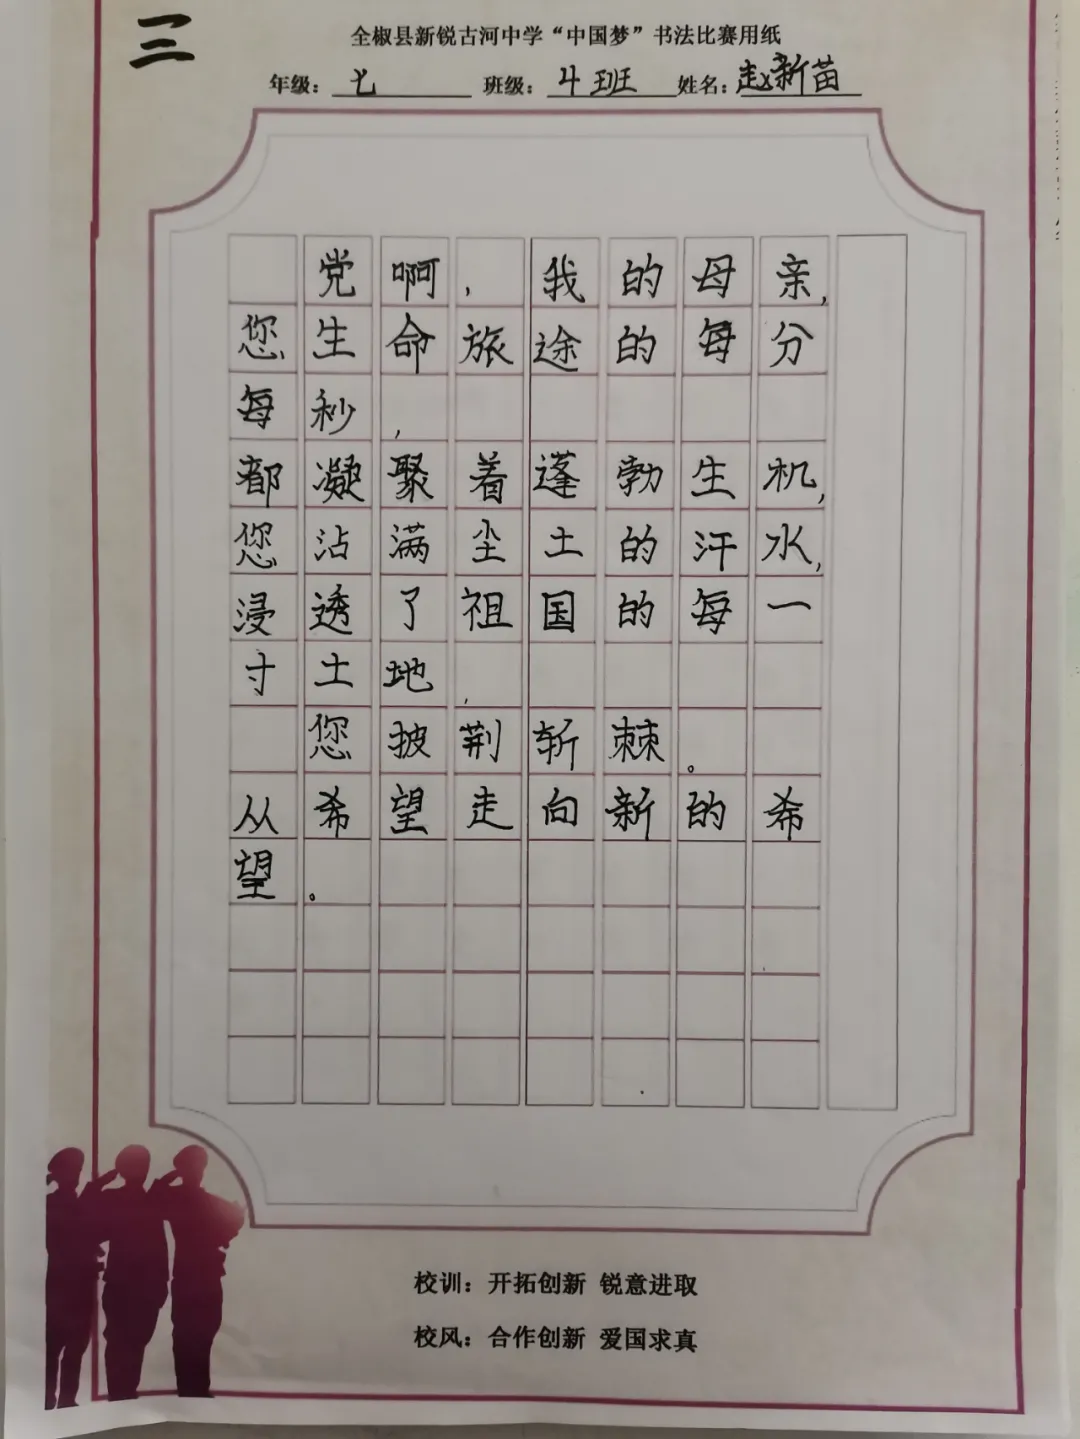 三
全椒县新锐古河中学“中国梦”书法比赛用纸
年级：七 班级：4班 姓名：赵新苗
党啊，我的母亲，
您生命旅途的每分
每秒，
都凝聚着蓬勃生机，
您沾满尘土的汗水，
浸透了祖国的每一
寸土地，
您披荆斩棘。
从希望走向新的希
望。
校训：开拓创新 锐意进取
校风：合作创新 爱国求真